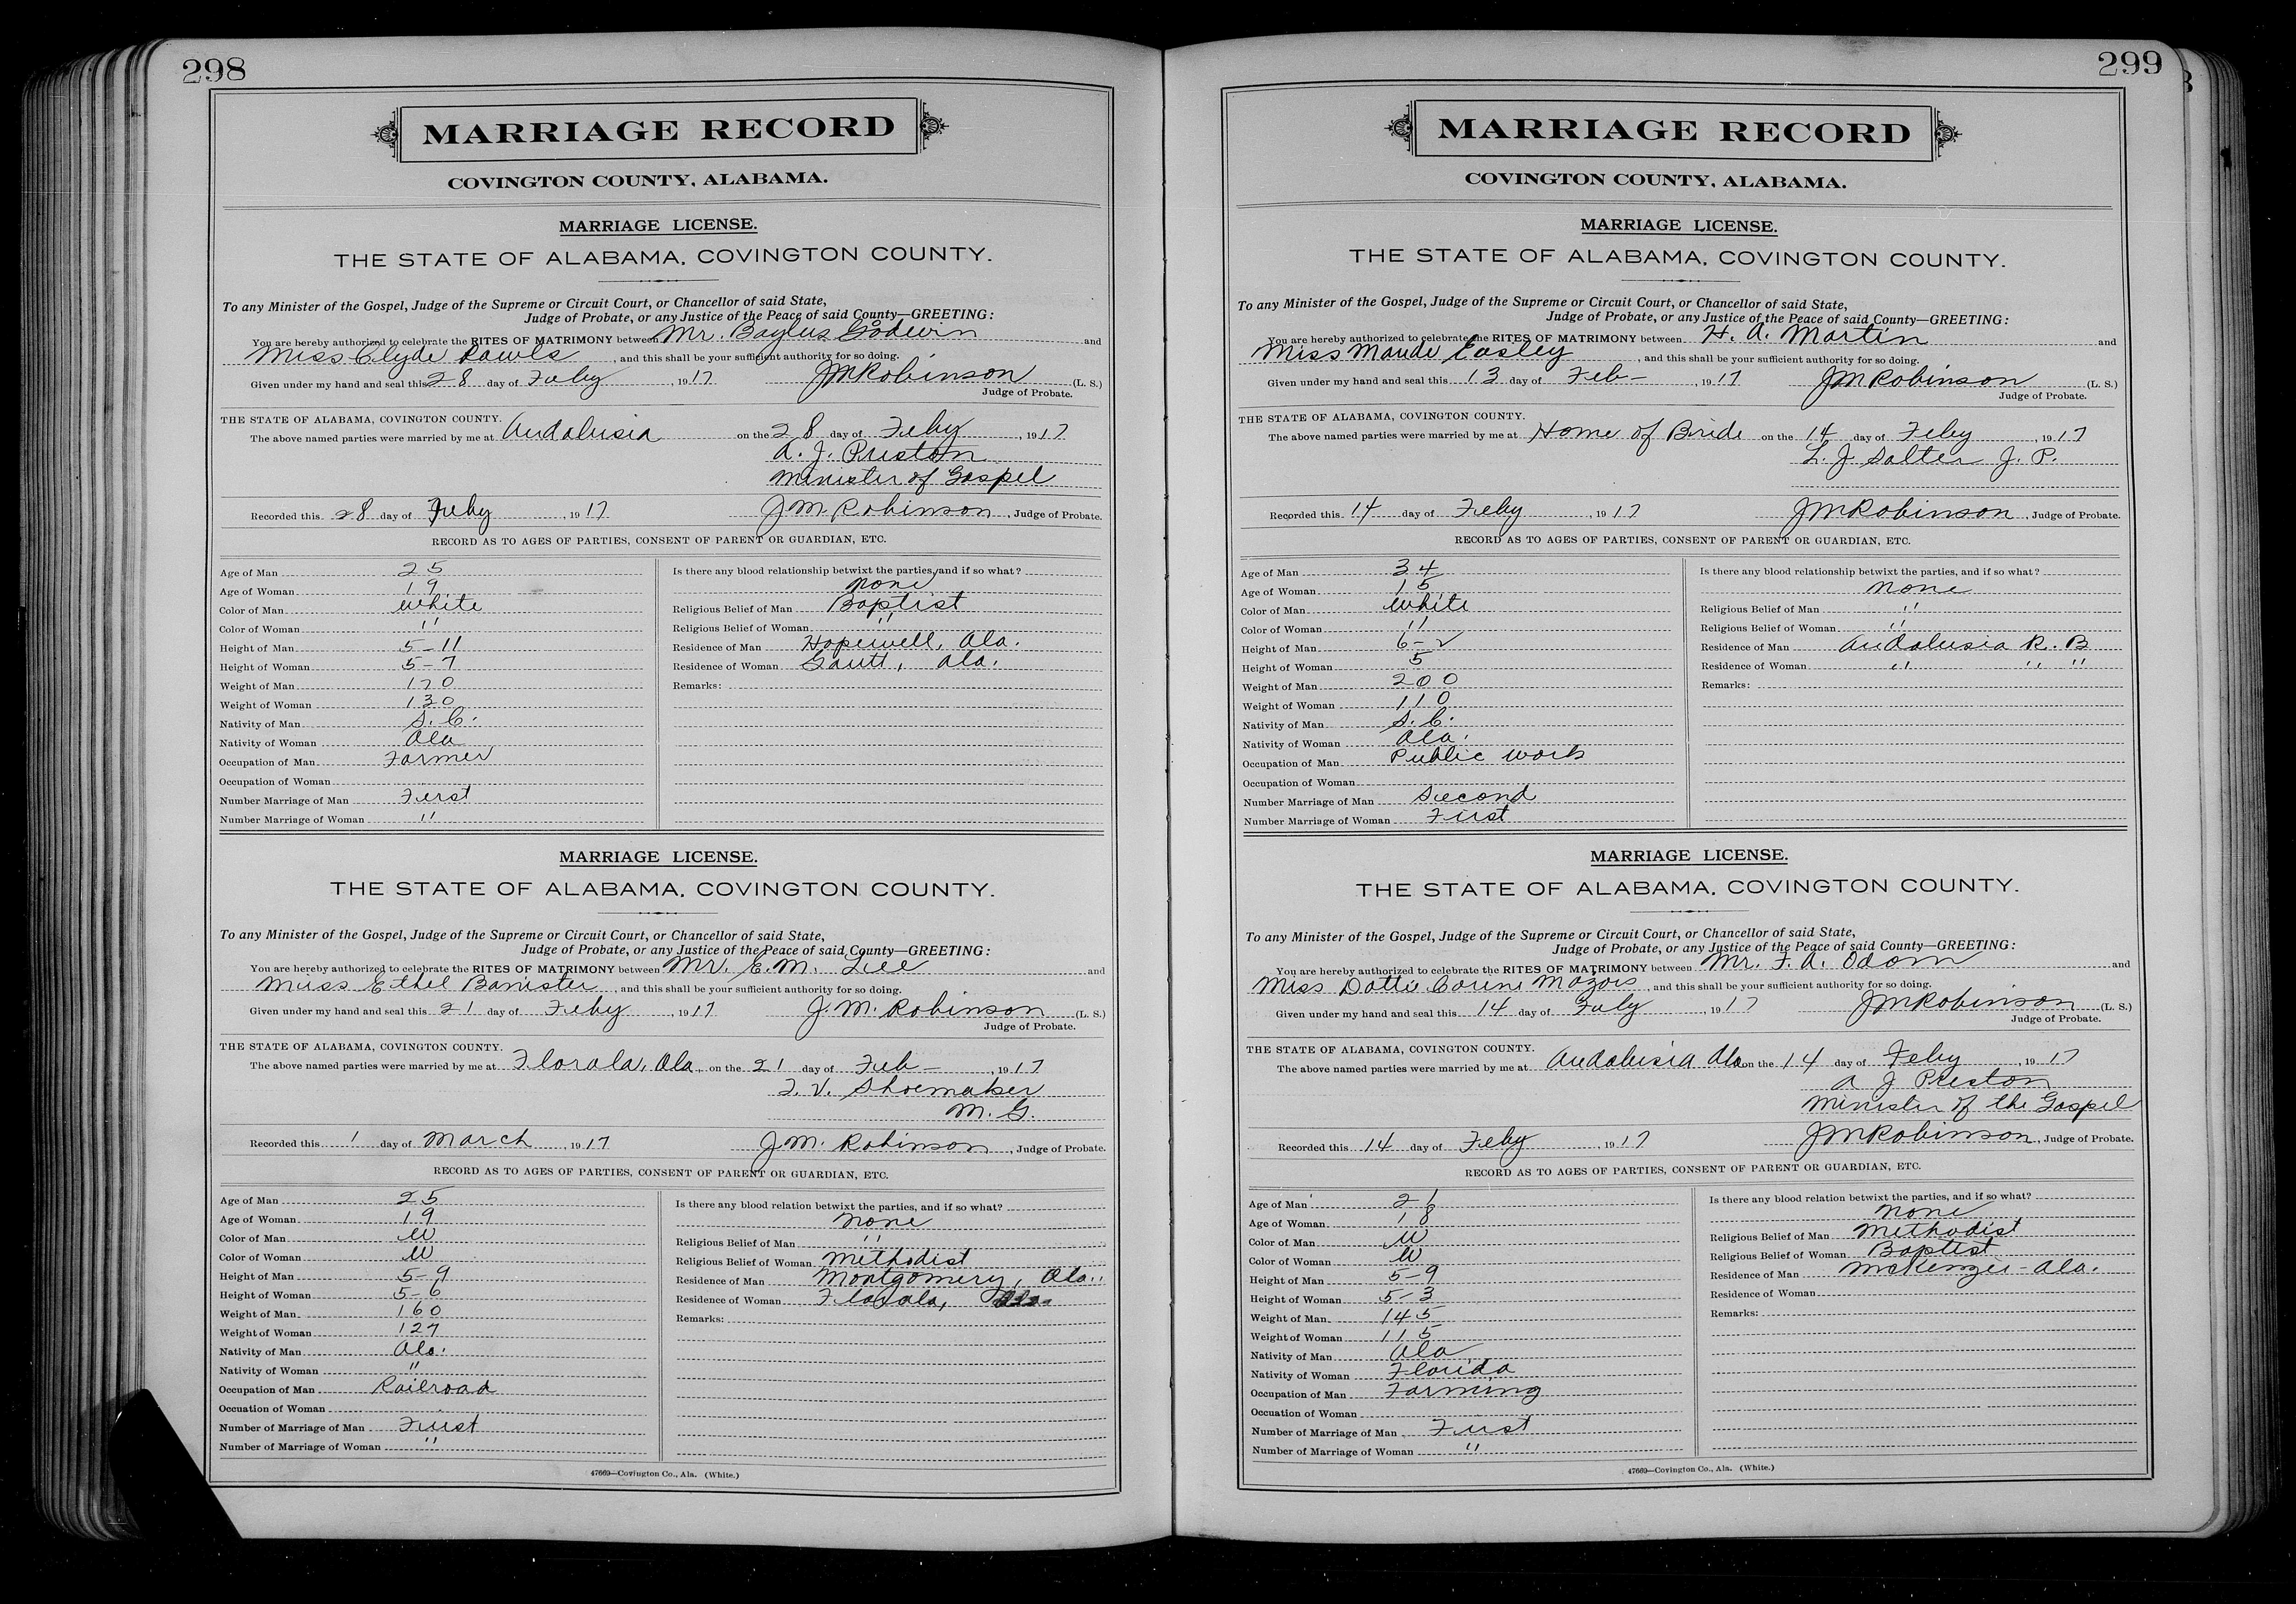 298
MARRIAGE RECORD
COVINGTON COUNTY, ALABAMA.
MARRIAGE LICENSE.
THE STATE OF ALABAMA, COVINGTON COUNTY.
To any Minister of the Gospel, Judge of the Supreme or Circuit Court, or Chancellor of said State,
Judge of Probate, or any Justice of the Peace of said County—GREETING:
You are hereby authorized to celebrate the RITES OF MATRIMONY between Mr. Baylus Godwin and
Miss Clyde Rawls, and this shall be your sufficient authority for so doing.
Given under my hand and seal this 28 day of Feby, 1917 JM Robinson (L. S.)
Judge of Probate.
THE STATE OF ALABAMA, COVINGTON COUNTY.
The above named parties were married by me at Andalusia on the 28 day of Feby, 1917
A. J. Preston
Minister of Gospel
Recorded this 28 day of Feby, 1917 J M Robinson, Judge of Probate.
RECORD AS TO AGES OF PARTIES, CONSENT OF PARENT OR GUARDIAN, ETC.
Age of Man 25
Age of Woman 19
Color of Man White
Color of Woman "
Height of Man 5-11
Height of Woman 5-7
Weight of Man 170
Weight of Woman 130
Nativity of Man S. C.
Nativity of Woman Ala
Occupation of Man Farmer
Occupation of Woman
Number Marriage of Man First
Number Marriage of Woman "
Is there any blood relationship betwixt the parties, and if so what?
None
Religious Belief of Man Baptist
Religious Belief of Woman "
Residence of Man Hopewell, Ala.
Residence of Woman Gantt, Ala.
Remarks:
MARRIAGE LICENSE.
THE STATE OF ALABAMA, COVINGTON COUNTY.
To any Minister of the Gospel, Judge of the Supreme or Circuit Court, or Chancellor of said State,
Judge of Probate, or any Justice of the Peace of said County—GREETING:
You are hereby authorized to celebrate the RITES OF MATRIMONY between Mr. E. M. Lee and
Miss Ethel Banister, and this shall be your sufficient authority for so doing.
Given under my hand and seal this 21 day of Feby, 1917 J. M. Robinson (L. S.)
Judge of Probate.
THE STATE OF ALABAMA, COVINGTON COUNTY.
The above named parties were married by me at Florala, Ala. on the 21 day of Feb-, 1917
T. V. Shoemaker
M. G.
Recorded this 1 day of March, 1917 J. M. Robinson, Judge of Probate.
RECORD AS TO AGES OF PARTIES, CONSENT OF PARENT OR GUARDIAN, ETC.
Age of Man 25
Age of Woman 19
Color of Man W
Color of Woman W
Height of Man 5-9
Height of Woman 5-6
Weight of Man 160
Weight of Woman 127
Nativity of Man Ala.
Nativity of Woman "
Occupation of Man Railroad
Occuation of Woman
Number of Marriage of Man First
Number of Marriage of Woman "
Is there any blood relation betwixt the parties, and if so what?
None
Religious Belief of Man "
Religious Belief of Woman Methodist
Residence of Man Montgomery, Ala.
Residence of Woman Florala, Ala
Remarks:
47669—Covington Co., Ala. (White.)
299
MARRIAGE RECORD
COVINGTON COUNTY, ALABAMA.
MARRIAGE LICENSE.
THE STATE OF ALABAMA, COVINGTON COUNTY.
To any Minister of the Gospel, Judge of the Supreme or Circuit Court, or Chancellor of said State,
Judge of Probate, or any Justice of the Peace of said County—GREETING:
You are hereby authorized to celebrate the RITES OF MATRIMONY between H. A. Martin and
Miss Maude Easley, and this shall be your sufficient authority for so doing.
Given under my hand and seal this 13 day of Feb-, 1917 JM Robinson (L. S.)
Judge of Probate.
THE STATE OF ALABAMA, COVINGTON COUNTY.
The above named parties were married by me at Home of Bride on the 14 day of Feby, 1917
L. J. Salter J. P.
Recorded this 14 day of Feby, 1917 JM Robinson, Judge of Probate.
RECORD AS TO AGES OF PARTIES, CONSENT OF PARENT OR GUARDIAN, ETC.
Age of Man 34
Age of Woman 15
Color of Man White
Color of Woman "
Height of Man 6-2
Height of Woman 5
Weight of Man 200
Weight of Woman 110
Nativity of Man S. C.
Nativity of Woman Ala.
Occupation of Man Public Work
Occupation of Woman
Number Marriage of Man Second
Number Marriage of Woman First
Is there any blood relationship betwixt the parties, and if so what?
None
Religious Belief of Man "
Religious Belief of Woman "
Residence of Man Andalusia R. B
Residence of Woman " " "
Remarks:
MARRIAGE LICENSE.
THE STATE OF ALABAMA, COVINGTON COUNTY.
To any Minister of the Gospel, Judge of the Supreme or Circuit Court, or Chancellor of said State,
Judge of Probate, or any Justice of the Peace of said County—GREETING:
You are hereby authorized to celebrate the RITES OF MATRIMONY between Mr. F. A. Odom and
Miss Dottie Corine, and this shall be your sufficient authority for so doing.
Given under my hand and seal this 14 day of Feby, 1917 JM Robinson (L. S.)
Judge of Probate.
THE STATE OF ALABAMA, COVINGTON COUNTY.
The above named parties were married by me at Andalusia Ala on the 14 day of Feby, 1917
A J Preston
Minister of the Gospel
Recorded this 14 day of Feby, 1917 JM Robinson, Judge of Probate.
RECORD AS TO AGES OF PARTIES, CONSENT OF PARENT OR GUARDIAN, ETC.
Age of Man 21
Age of Woman 18
Color of Man W
Color of Woman W
Height of Man 5-9
Height of Woman 5-3
Weight of Man 145
Weight of Woman 115
Nativity of Man Ala
Nativity of Woman Florida
Occupation of Man Farming
Occuation of Woman
Number of Marriage of Man First
Number of Marriage of Woman "
Is there any blood relation betwixt the parties, and if so what?
None
Religious Belief of Man Methodist
Religious Belief of Woman Baptist
Residence of Man McKenzie-Ala.
Residence of Woman
Remarks:
47669—Covington Co., Ala. (White.)